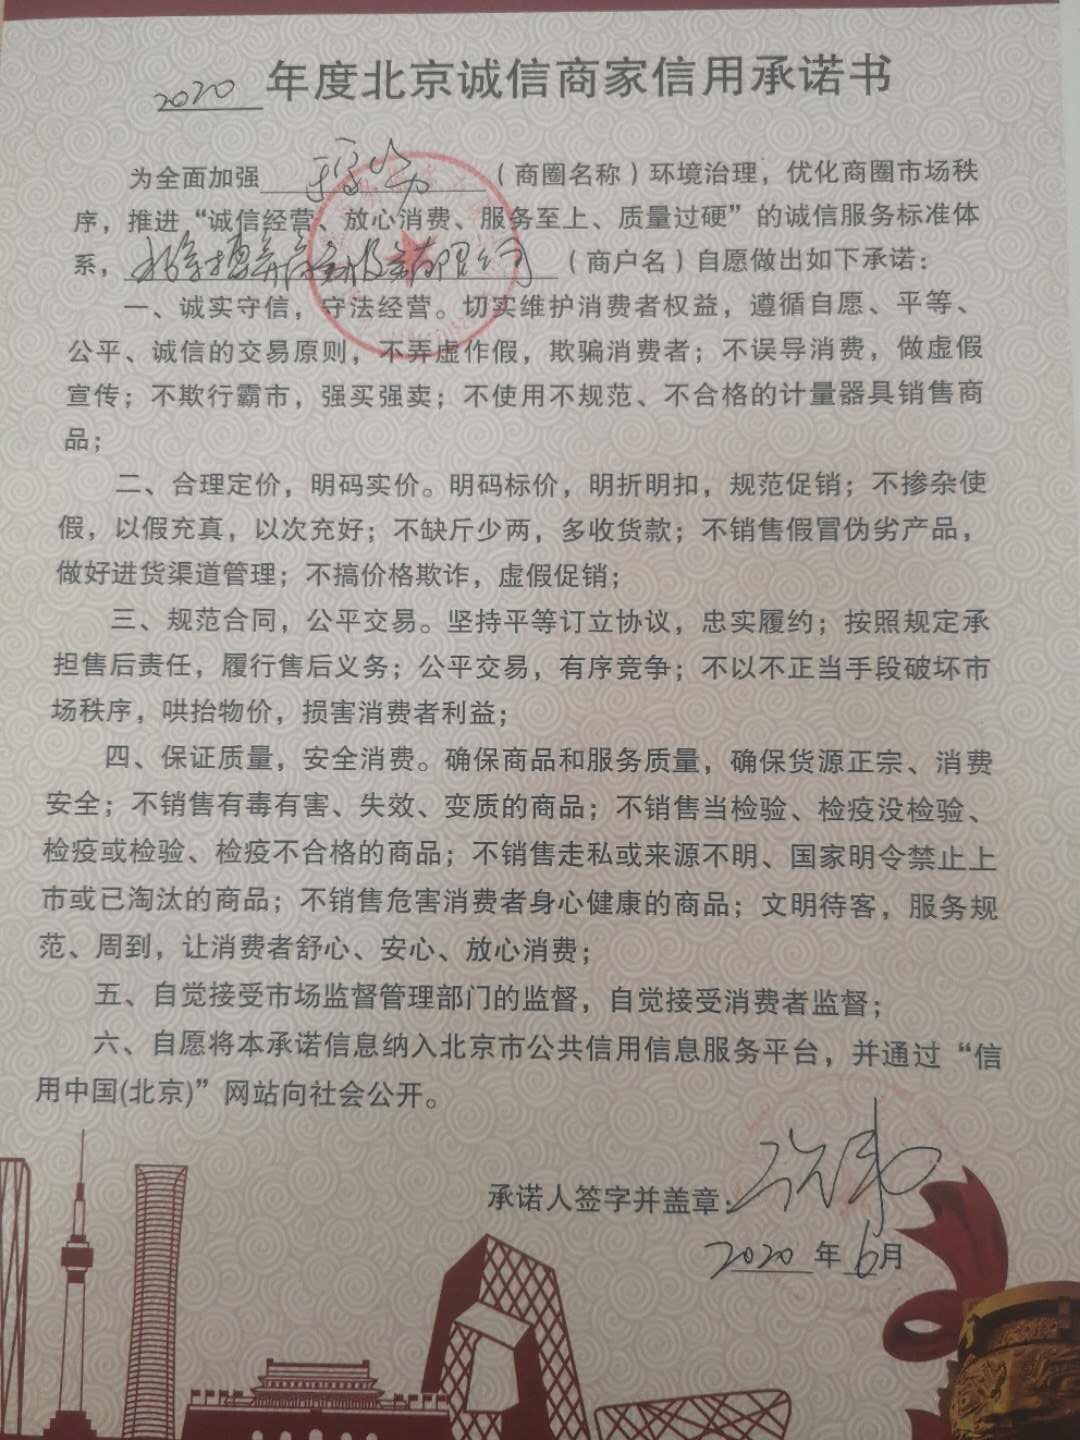 2020 年度北京诚信商家信用承诺书
为全面加强（商圈名称）环境治理，优化商圈市场秩
序，推进“诚信经营、放心消费、服务至上、质量过硬”的诚信服务标准体
系，（商户名）自愿做出如下承诺：
一、诚实守信，守法经营。切实维护消费者权益，遵循自愿、平等、
公平、诚信的交易原则，不弄虚作假，欺骗消费者；不误导消费，做虚假
宣传；不欺行霸市，强买强卖；不使用不规范、不合格的计量器具销售商
品；
二、合理定价，明码实价。明码标价，明折明扣，规范促销；不掺杂使
假，以假充真，以次充好；不缺斤少两，多收货款；不销售假冒伪劣产品，
做好进货渠道管理；不搞价格欺诈，虚假促销；
三、规范合同，公平交易。坚持平等订立协议，忠实履约；按照规定承
担售后责任，履行售后义务；公平交易，有序竞争；不以不正当手段破坏市
场秩序，哄抬物价，损害消费者利益；
四、保证质量，安全消费。确保商品和服务质量，确保货源正宗、消费
安全；不销售有毒有害、失效、变质的商品；不销售当检验、检疫没检验、
检疫或检验、检疫不合格的商品；不销售走私或来源不明、国家明令禁止上
市或已淘汰的商品；不销售危害消费者身心健康的商品；文明待客，服务规
范、周到，让消费者舒心、安心、放心消费；
五、自觉接受市场监督管理部门的监督，自觉接受消费者监督；
六、自愿将本承诺信息纳入北京市公共信用信息服务平台，并通过“信
用中国(北京)”网站向社会公开。
承诺人签字并盖章：
2020 年 6月